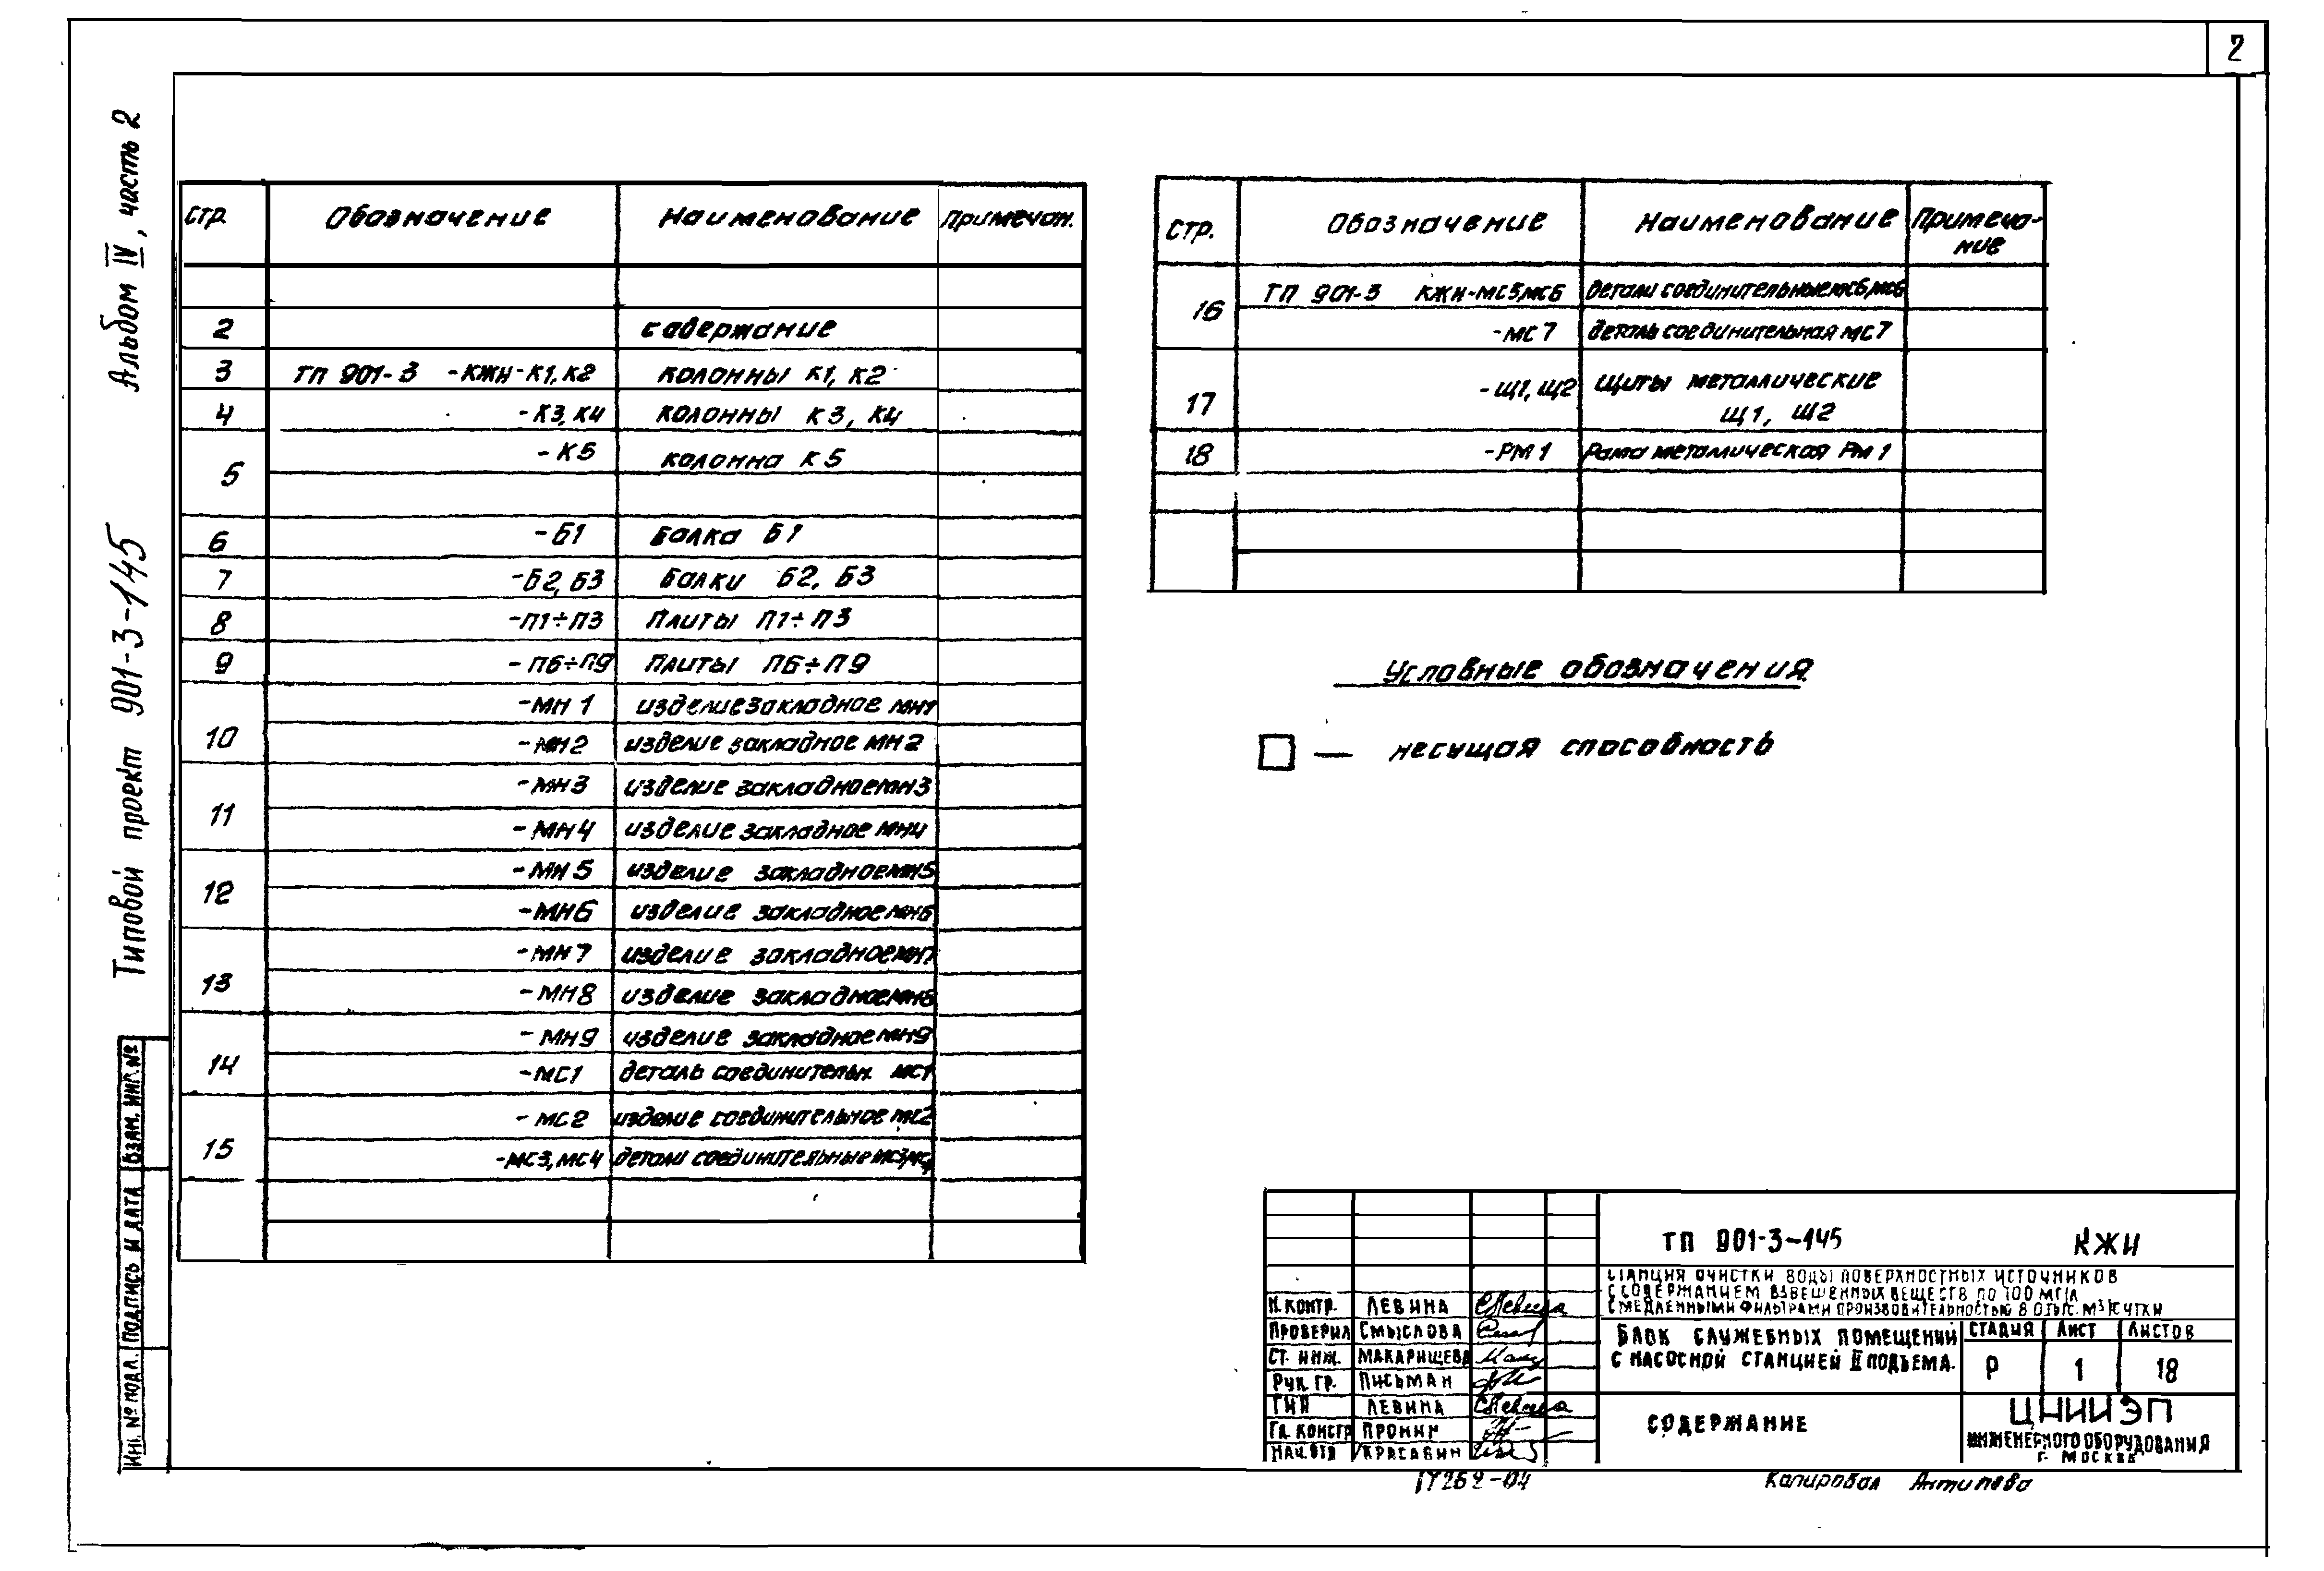 2
Альбом IV, часть 2
Типовой проект 901-3-145
Взам. инв. №
Подпись и дата
Инв. № подл.
Стр. Обозначение Наименование Примечан.
2 содержание
3 ТП 901-3 -КЖИ-К1, К2 колонны К1, К2
4 -К3, К4 колонны К3, К4
5 -К5 колонна К5
6 -Б1 Балка Б1
7 -Б2, Б3 Балки Б2, Б3
8 -П1÷П3 Плиты П1÷П3
9 -П6÷П9 Плиты П6÷П9
10 -МН1 изделие закладное МН1
-МН2 изделие закладное МН2
11 -МН3 изделие закладное МН3
-МН4 изделие закладное МН4
12 -МН5 изделие закладное МН5
-МН6 изделие закладное МН6
13 -МН7 изделие закладное МН7
-МН8 изделие закладное МН8
14 -МН9 изделие закладное МН9
-МС1 деталь соединительн. МС1
15 -МС2 изделие соединительное МС2
-МС3, МС4 детали соединительные МС3, МС4
Стр. Обозначение Наименование Примеча-
ние
16 ТП 901-3 КЖИ-МС5, МС6 детали соединительные МС6
-МС7 деталь соединительная МС7
17 -Щ1, Щ2 Щиты металлические
Щ1, Щ2
18 -РМ1 Рама металлическая РМ1
Условные обозначения
— несущая способность
ТП 901-3-145 КЖИ
Станция очистки воды поверхностных источников
с содержанием взвешенных веществ до 100 мг/л
с медленными фильтрами производительностью 8 0 тыс. м³/сутки
Блок служебных помещений
с насосной станцией II подъема.
Стадия Лист Листов
Р 1 18
Содержание
ЦНИИЭП
инженерного оборудования
г. Москва
Н. контр. Левина
Проверил Смыслова
Ст. инж. Макарищева
Рук. гр. Письман
ГИП Левина
Гл. констр Пронин
Нач. отд Красавин
17262-04
Копировал Антипова